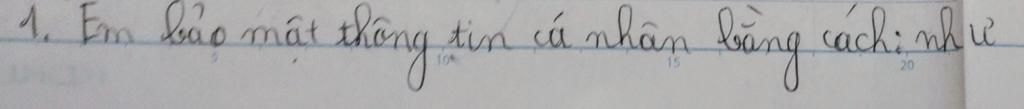 1. Em bảo mật thông tin cá nhân bằng cách: như